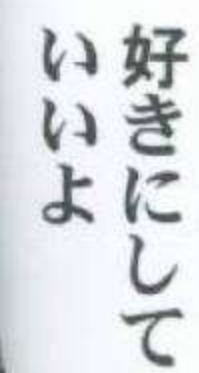 好きにして
いいよ